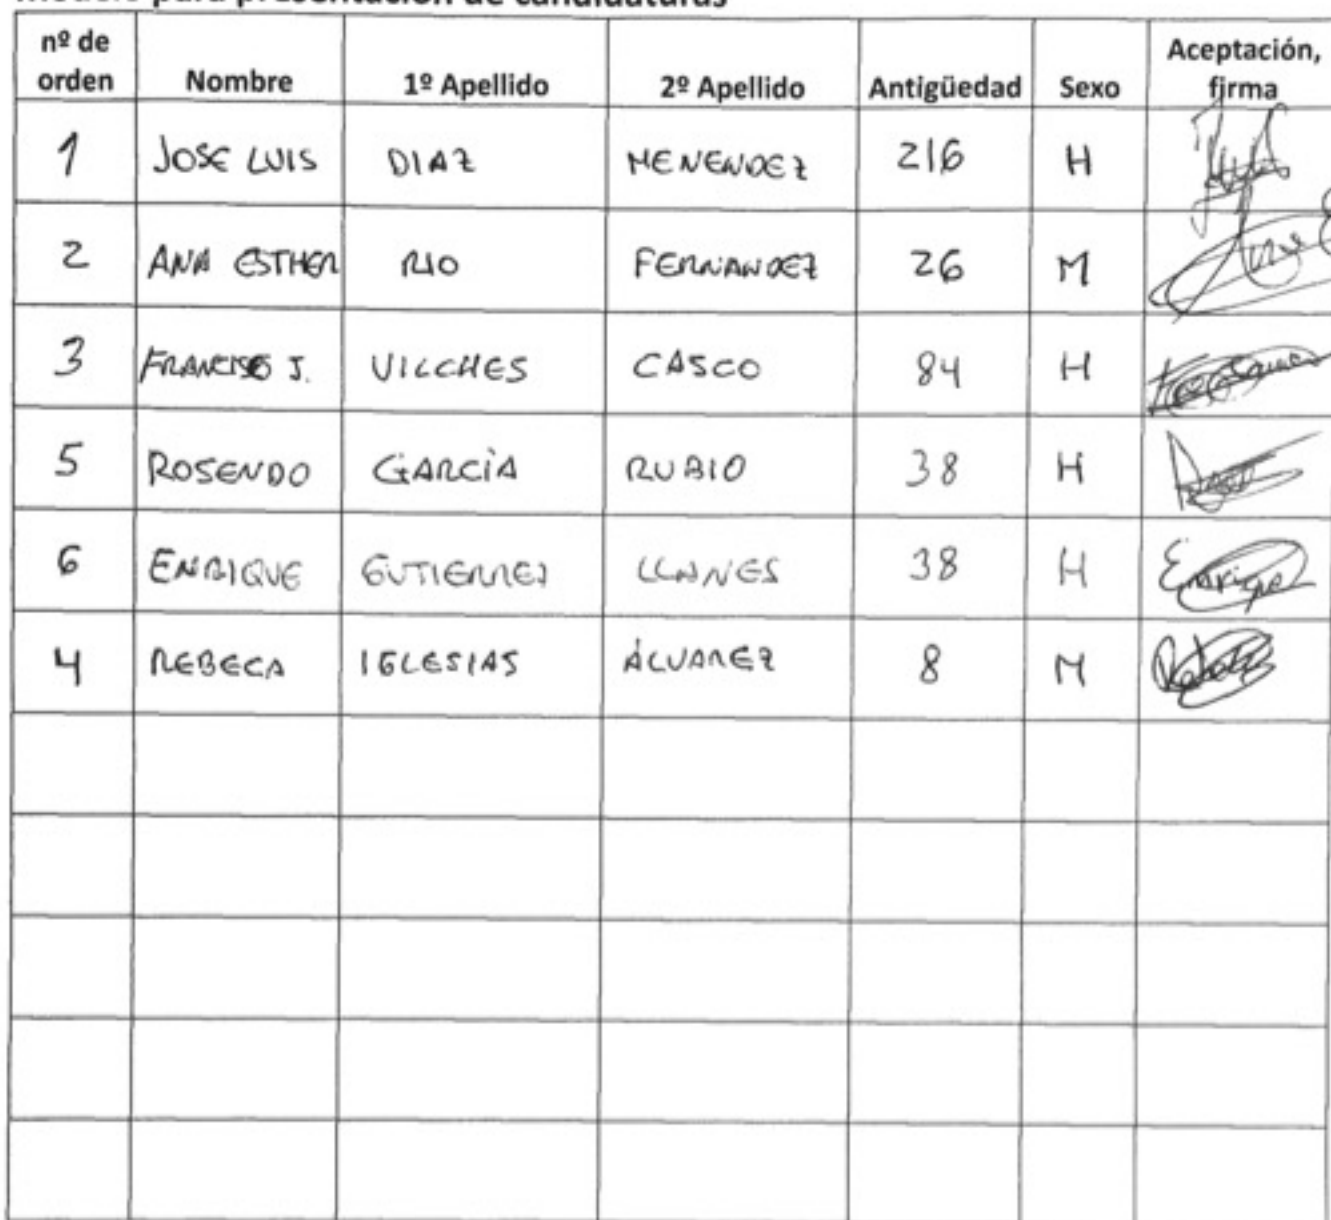 Modelo para presentación de candidaturas
nº de orden Nombre 1º Apellido 2º Apellido Antigüedad Sexo Aceptación, firma
1 JOSE LUIS DIAZ MENENDEZ 216 H
2 ANA ESTHER RIO FERNANDEZ 26 M
3 FRANCISCO J. VILCHES CASCO 84 H
5 ROSENDO GARCÍA RUBIO 38 H
6 ENRIQUE GUTIERREZ LLANES 38 H Enrique
4 REBECA IGLESIAS ÁLVAREZ 8 M